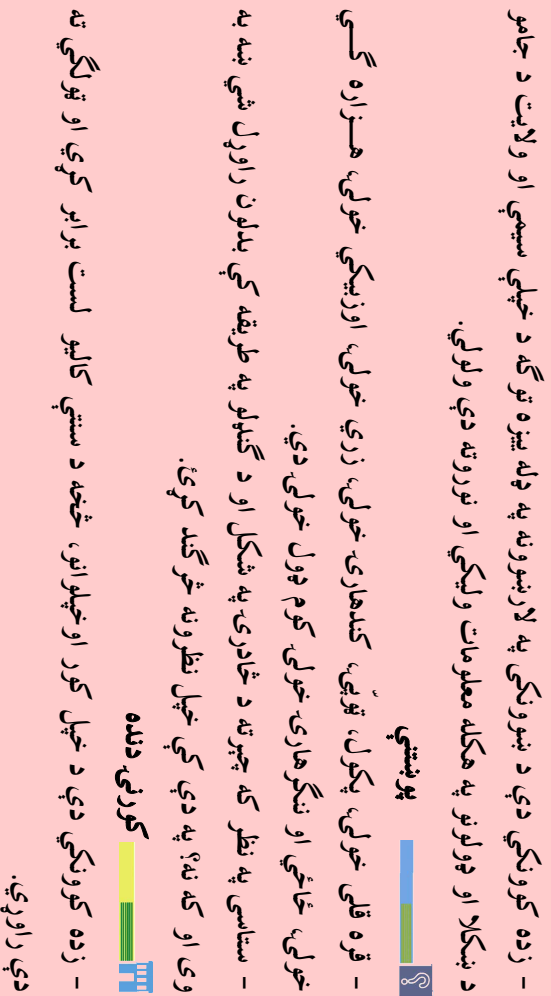 – زده کوونکي دي د ښوونکي په لارښوونه په ډله ييزه توگه د خپلي سيمي او ولايت د جامو
د ښکلا او ډولونو په هکله معلومات وليکي او نوروته دي ولولي.
پوښتني
– قره قلی خولۍ، پکول، ټوپۍ، کندهارۍ خولۍ، زري خولۍ، اوزبيکي خولۍ، هـــزاره گـــي
خولۍ، ځاځي او ننگرهارۍ خولۍ کوم ډول خولۍ دي.
– ستاسي په نظر که چيرته د څادرۍ په شکل او د گنډلو په طريقه کي بدلون راوړل شي ښه به
وي او که نه؟ په دې کي خپل نظرونه څرگند کړئ.
کورنۍ دنده
– زده کوونکي دي د خپل کور او خپلوانو، څخه د سنتي کاليو لست برابر کړي او ټولگي ته
دي راوړي.